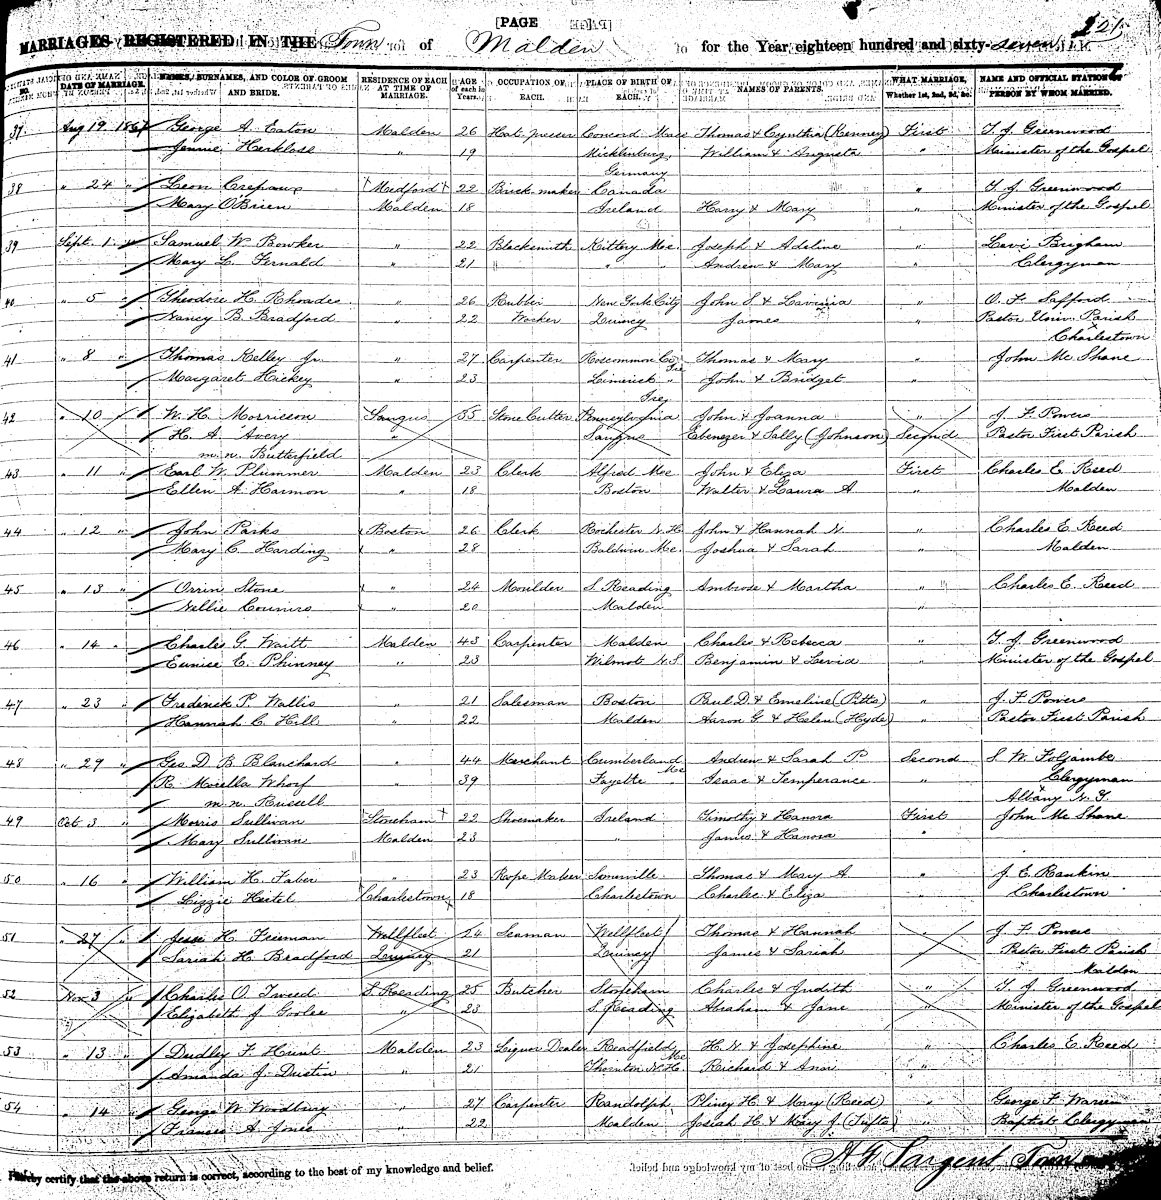 [PAGE
221
MARRIAGES REGISTERED IN THE Town of Malden for the Year eighteen hundred and sixty-seven
No. DATE OF MARRIAGE. NAMES, SURNAMES, AND COLOR OF GROOM AND BRIDE. RESIDENCE OF EACH AT TIME OF MARRIAGE. AGE of each in Years. OCCUPATION OF EACH. PLACE OF BIRTH OF EACH. NAMES OF PARENTS. WHAT MARRIAGE, Whether 1st, 2nd, 3d, &c. NAME AND OFFICIAL STATION OF PERSON BY WHOM MARRIED.
37 Aug 19 1867 George A. Eaton Malden 26 Hat presser Concord Mass Thomas & Cynthia (Kenney) First T. J. Greenwood
Jennie Herklose " 19 Micklinburg Germany William & Augusta " Minister of the Gospel
38 " 24 " Leon Crepaux Medford 22 Brick-maker Canada " T J Greenwood
Mary O'Brien Malden 18 Ireland Harry & Mary " Minister of the Gospel
39 Sept. 1 " Samuel W. Bowker " 22 Blacksmith Kittery Me. Joseph & Adeline " Levi Brigham
Mary L. Fernald " 21 " " Andrew & Mary " Clergyman
40 " 5 " Theodore H. Rhoades " 26 Rubber New York City John S. & Lavinia " O. F. Safford
Nancy B. Bradford " 22 Worker Quincy James " Pastor Univ. Parish
Charlestown
41 " 8 " Thomas Kelley Jr. " 27 Carpenter Roscommon Co Ire Thomas & Mary " John Mc Shane
Margaret Hickey " 23 Limerick " Ire John & Bridget "
42 " 10 " W. H. Morrisson Saugus 35 Stone Cutter Pennsylvania John & Joanna " J. F. Powers
H. A. Avery " Saugus Ebenezer & Sally (Johnson) Second Pastor First Parish
m. n. Butterfield
43 " 11 " Earl W. Plummer Malden 23 Clerk Alfred Me John & Eliza First Charles E. Reed
Ellen A. Harmon " 18 Boston Walter & Laura A " Malden
44 " 12 " John Parks Boston 26 Clerk Rochester N. H. John & Hannah N. " Charles E. Reed
Mary C. Harding " 28 Baldwin Me. Joshua & Sarah " Malden
45 " 13 " Orrin Stone " 24 Moulder S. Reading Ambrose & Martha " Charles E. Reed
Nellie " 20 Malden "
46 " 14 " Charles G. Waitt Malden 43 Carpenter Malden Charles & Rebecca " T. J. Greenwood
Eunice E. Phinney " 23 Wilmot N. S. Benjamin & Levia " Minister of the Gospel
47 " 23 " Frederick P. Wallis " 21 Salesman Boston Paul D. & Emeline (Pitts) " J. F. Powers
Hannah C. Hill " 22 Malden Aaron G. & Helen (Hyde) " Pastor First Parish
48 " 29 " Geo D. B. Blanchard " 44 Merchant Cumberland Me Andrew & Sarah P. Second S. W. Foljambe
R. Morella Whorf " 39 Fayette " Isaac & Temperance " Clergyman
m. n. Russell Albany N. Y.
49 Oct. 3 " Morris Sullivan Stoneham 22 Shoemaker Ireland Timothy & Hanora First John Mc Shane
Mary Sullivan Malden 23 " James & Hanora "
50 " 16 " William H. Faber " 23 Rope Maker Somerville Thomas & Mary A " J. E. Rankin
Lizzie Heitel Charlestown 18 Charlestown Charles & Eliza " Charlestown
51 " 27 " Jesse H. Freeman Wellfleet 24 Seaman Wellfleet Thomas & Hannah " J. F. Powers
Sarah H. Bradford Quincy 21 Quincy James & Sarah Pastor First Parish
Malden
52 Nov. 3 " Charles O. Tweed S. Reading 25 Butcher Stoneham Charles & Judith " T. J. Greenwood
Elizabeth J. " 23 S. Reading Abraham & Jane " Minister of the Gospel
53 " 13 " Dudley F. Hunt Malden 23 Liquor Dealer Readfield Me H. N. & Josephine " Charles E. Reed
Amanda J. Dustin " 21 Thornton N. H. Richard & Ann "
54 " 14 " George W. Woodbury " 27 Carpenter Randolph Pliney H. & Mary (Reed) " George F. Warren
Frances A. Jones " 22 Malden Josiah H. & Mary J. (Tufts) " Baptist Clergyman
hereby certify that the above return is correct, according to the best of my knowledge and belief. Sargent Town